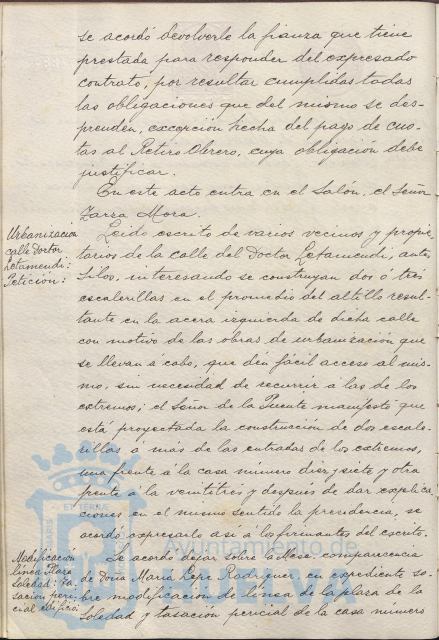 se acordó devolverle la fianza que tiene
prestada para responder del expresado
contrato, por resultar cumplidas todas
las obligaciones que del mismo se des-
prenden, excepción hecha del pago de cuo-
tas al Retiro Obrero, cuya obligación debe
justificar.
En este acto entra en el Salón, el Señor
Zarza Mora.
Urbanización
calle Doctor
Letamendi:
Petición:
Leido escrito de varios vecinos y propie-
tarios de la calle del Doctor Letamendi, antes
Silos, interesando se construyan dos ó tres
escalerillas en el promedio del altillo resul-
tante en la acera izquierda de dicha calle
con motivo de las obras de urbanización que
se llevan á cabo, que dén fácil acceso al mis-
mo, sin necesidad de recurrir á las de los
extremos; el Señor de la Puente manifestó que
está proyectada la construcción de dos escale-
rillas á más de las entradas de los extremos,
una frente á la casa número diez y siete y otra
frente á la veintitres y despues de dar explica-
ciones en el mismo sentido la presidencia, se
acordó expresarlo así á los firmantes del escrito.
Modificación
línea Plaza
Soledad: Ta-
sación peri-
cial edificio
Se acordó dejar sobre la Mesa, comparecencia
de Doña María Pepe Rodriguez, en expediente so-
bre modificación de línea de la plaza de la
Soledad y tasación pericial de la casa número
Ayuntamiento
HUELVA